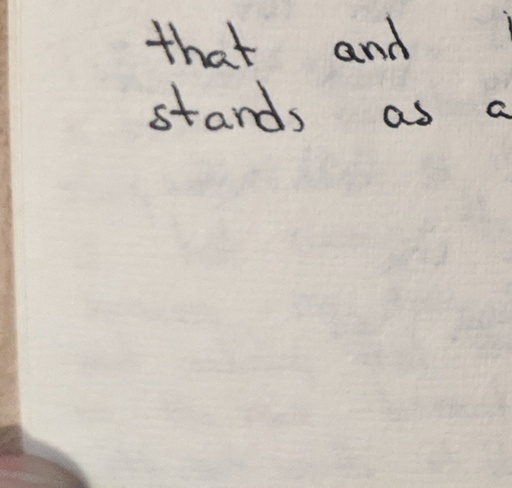 that and
stands as a